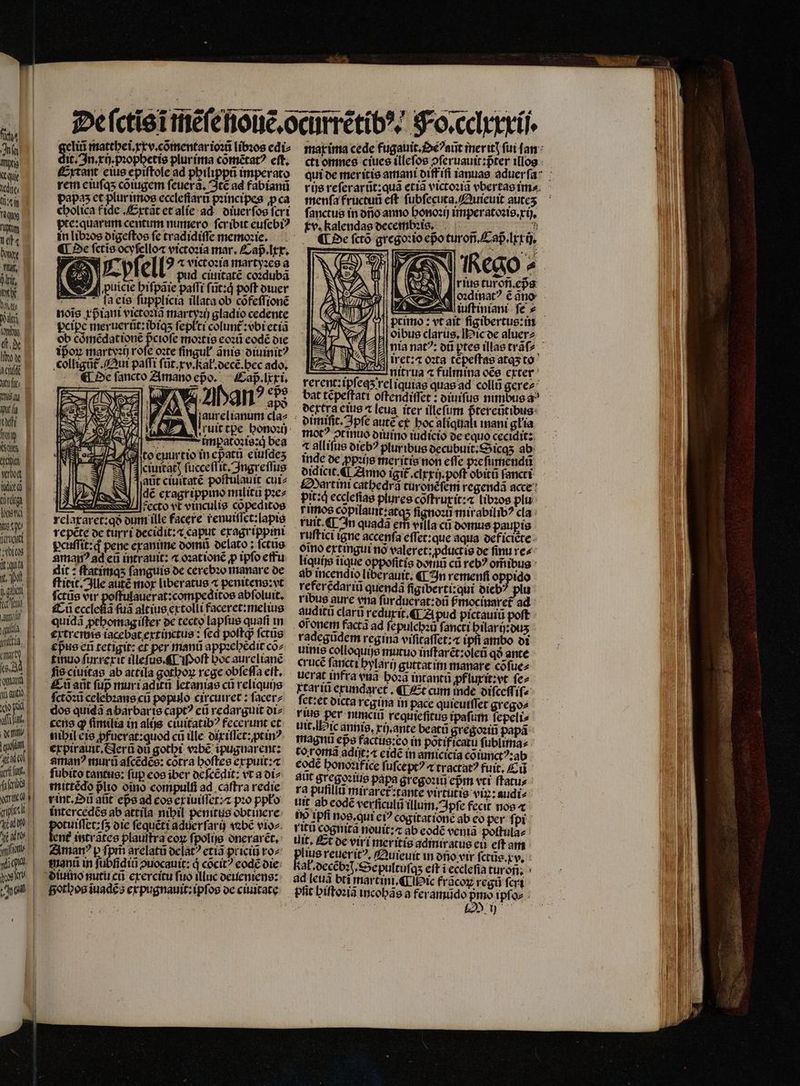 De sctis i mẽse nouẽ. ocurrẽtibꝰ. Fo.cclxxxii.
geliũ matthei.xxv.cõmentarioꝝ libros edi⸗
dit. In.xij.prophetis plurima cõmẽtatꝰ est.
Extant eius epistole ad philippũ imperato
rem eiusqꝫ cõiugem seuerã. Itẽ ad fabianũ
papaꝫ et plurimos ecclesiarũ principes ꝓ ca
tholica fide. Extãt et alie ad diuersos scri
pte: quarum centum numero scribit eusebiꝰ
in libros digestos se tradidisse memorie.
¶ De sctis ocysello ⁊ victoria mar. Cap̃.lxx.
Cysellꝰ ⁊ victoria martyres a
pud ciuitatẽ cordubã
puicie hispãie passi sũt: q̃ post diuer
sa eis supplicia illata ob cõfessionẽ
nois xp̃iani victoriã martyrij gladio cedente
pcipe meruerũt: ibiqꝫ seplti colunt̃: vbi etiã
ob cõmẽdationẽ p̃ciose mortis eorũ eodẽ die
ip̃oꝝ martyrij rose orte singul' ãnis diuinitꝰ
colligũt̃. Qui passi sũt.xv.kal̃.decẽ.hec ado.
¶ De sancto Amano ep̃o. Cap̃.lxxi.
Amanꝰ ep̃s
apd̃
aurelianum cla⸗
ruit tpe honorij
impatoris: q̃ bea
to euurtio in ep̃atũ eiusdeꝫ
ciuitatꝭ successit. Ingressus
aũt ciuitatẽ postulauit cui⸗
dẽ exagrippino militũ pre⸗
fecto vt vinculis cõpeditos
relaxaret: qd̃ dum ille facere renuisset: lapis
repẽte de turri decidit: ⁊ caput exagrippini
pcussit: q̃ pene exanime domũ delato: sctũs
amanꝰ ad eũ intrauit: ⁊ oratiõe ꝓ ipso effu
dit: statimqꝫ sanguis de cerebro manare de
stitit. Ille autẽ mox liberatus ⁊ penitens: vt
sctũs vir postulauerat: compeditos absoluit.
Cũ ecclesiã suã altius extolli faceret: melius
quidã ꝓthomagister de tecto lapsus quasi in
extremis iacebat extinctus: sed postqꝫ sctũs
ep̃us eũ tetigit: et per manũ appreh̃edit cõ⸗
tinuo surrexit illesus. ¶ Post hoc aurelianẽ
sis ciuitas ab attila gothoꝝ rege obsessa est.
Cũ aũt sup̃ muri aditũ letanias cũ reliquijs
sctõrũ celebrans cũ populo circuiret: sacer⸗
dos quidã a barbaris captꝰ cũ redarguit di⸗
cens ꝙ similia in alijs ciuitatibꝰ fecerunt et
nihil eis ꝓfuerat: quod cũ ille dixisset: ptinꝰ
expirauit. Uerũ dũ gothi vrbẽ ipugnarent:
amanꝰ murũ ascẽdẽs: cõtra hostes expuit: ⁊
subito tantus: sup eos iber descẽdit: vt a di⸗
mittẽdo p̃lio oĩno compulsi ad castra redie
rint. Dũ aũt ep̃s ad eos exiuisset: ⁊ pro pplo
intercedẽs ab attila nihil penitus obtinere
potuisset: sꝫ die sequẽti aduersarij vrbẽ vio⸗
lent̃ intrãtes plaustra eoꝝ spolijs onerarẽt.
Amanꝰ ꝑ spm̃ arelatũ delatꝰ etiã priciũ ro⸗
manũ in subsidiũ ↄuocauit: q̃ cõcitꝰ eodẽ die
diuino nutu cũ exercitu suo illuc deueniens:
gothos iuadẽs expugnauit: ipsos de ciuitate
maxima cede fugauit. Dẽꝰ aũt meritꝭ sui san
cti omnes ciues illesos ↄseruauit: p̃ter illos
qui de meritis amani diffisi ianuas aduersa⸗
rijs reserarũt: quã etiã victoriã vbertas im⸗
mensa fructuũ est subsecuta. Quieuit auteꝫ
sanctus in dño anno honorij imperatoris.xij.
xv. kalendas decembris.
¶ De sctõ gregorio ep̃o turoñ. Cap̃.lxxij.
Grego⸗
rius turoñ.ep̃s
ordinatꝰ ẽ ãno
iustiniani se⸗
ptimo: vt ait sigibertus: in
oibus clarus. Hic de aluer⸗
nia natꝰ: dũ ptes illas trãs⸗
iret: ⁊ orta tẽpestas atqꝫ to⸗
nitrua ⁊ fulmina oẽs exter⸗
rerent: ipseqꝫ reliquias quas ad collũ gere⸗
bat tẽpestati ostendisset: diuisus nimbus aꝰ
dextra eius ⁊ leua iter illesum p̃tereũtibus
dimisit. Ipse autẽ ex hoc aliqttuli inani gl'ia
motꝰ ↄtinuo diuino iudicio de equo cecidit:
⁊ allisus diebꝰ pluribus decubuit. Sicqꝫ ab
inde de ꝓprijs meritis non esse presumendũ
didicit. ¶ Anno igit̃.clxxij. post obitũ sancti
Martini cathedrã turonẽsem regendã acce⸗
pit: q̃ ecclesias plures cõstruxit: ⁊ libros plu
rimos cõpilauit: atqꝫ signorũ mirabilibꝰ cla
ruit. ¶ In quadã em̃ villa cũ domus paupis
rustici igne accensa esset: que aqua deficiẽte
oĩno extingui nõ valeret: ꝓductis de sinu re⸗
liquijs iꝑe oppositis domũ cũ rebꝰ om̃ibus
ab incendio liberauit. ¶ In remensi oppido
referẽdariũ quendã sigiberti: qui diebꝰ plu
ribus aure vna surduerat: dũ p̃mocinaret̃ ad
auditũ clarũ reduxit. ¶ Apud pictauiũ post
oronem factã ad sepulchrũ sancti hilarij: dũꝫ
radegũdem reginã visitasset: ⁊ ipsi ambo di
uinis colloquijs mutuo instarẽt: oleũ qd̃ ante
crucẽ sancti hylarij guttatim manare cõsue⸗
uerat infra vnã horã intantũ ꝓfluxit: vt se⸗
xtariũ exundaret. ¶ Et cum inde discessis⸗
set: et dicta regina in pace quieuisset grego⸗
rius per nunciũ requisitus ipsam sepeli⸗
uit. Hic annis.xij. ante beatũ gregoriũ papã
magnũ ep̃s factus: eo in põtificatu sublima⸗
to romã adijt: ⁊ eidẽ in amicicia cõiunctꝰ: ab
eodẽ honorifice susceptꝰ ⁊ tractatꝰ fuit. Cũ
aũt gregorius papa gregoriũ ep̃m vti statu⸗
ra pusillũ miraret̃: tante virtutis virũ: audi⸗
uit ab eodẽ versiculũ illum. Ipse fecit nos ⁊
nõ ipsi nos. qui eiꝰ cogitationẽ ab eo per spi
ritũ cognita nouit: ⁊ ab eodẽ veniã postula⸗
uit. Et de viri meritis admiratus eũ est am
plius reueritꝰ. Quieuit in dño vir sctũs.xv.
kal̃.decẽbrꝭ. Sepultusqꝫ est i ecclesia turoñ.
ad leuã bti martini. ¶ Hic frãcoꝝ regũ scri
psit historiã incohãs a feramũdo p̃mo ipso⸗
M ij